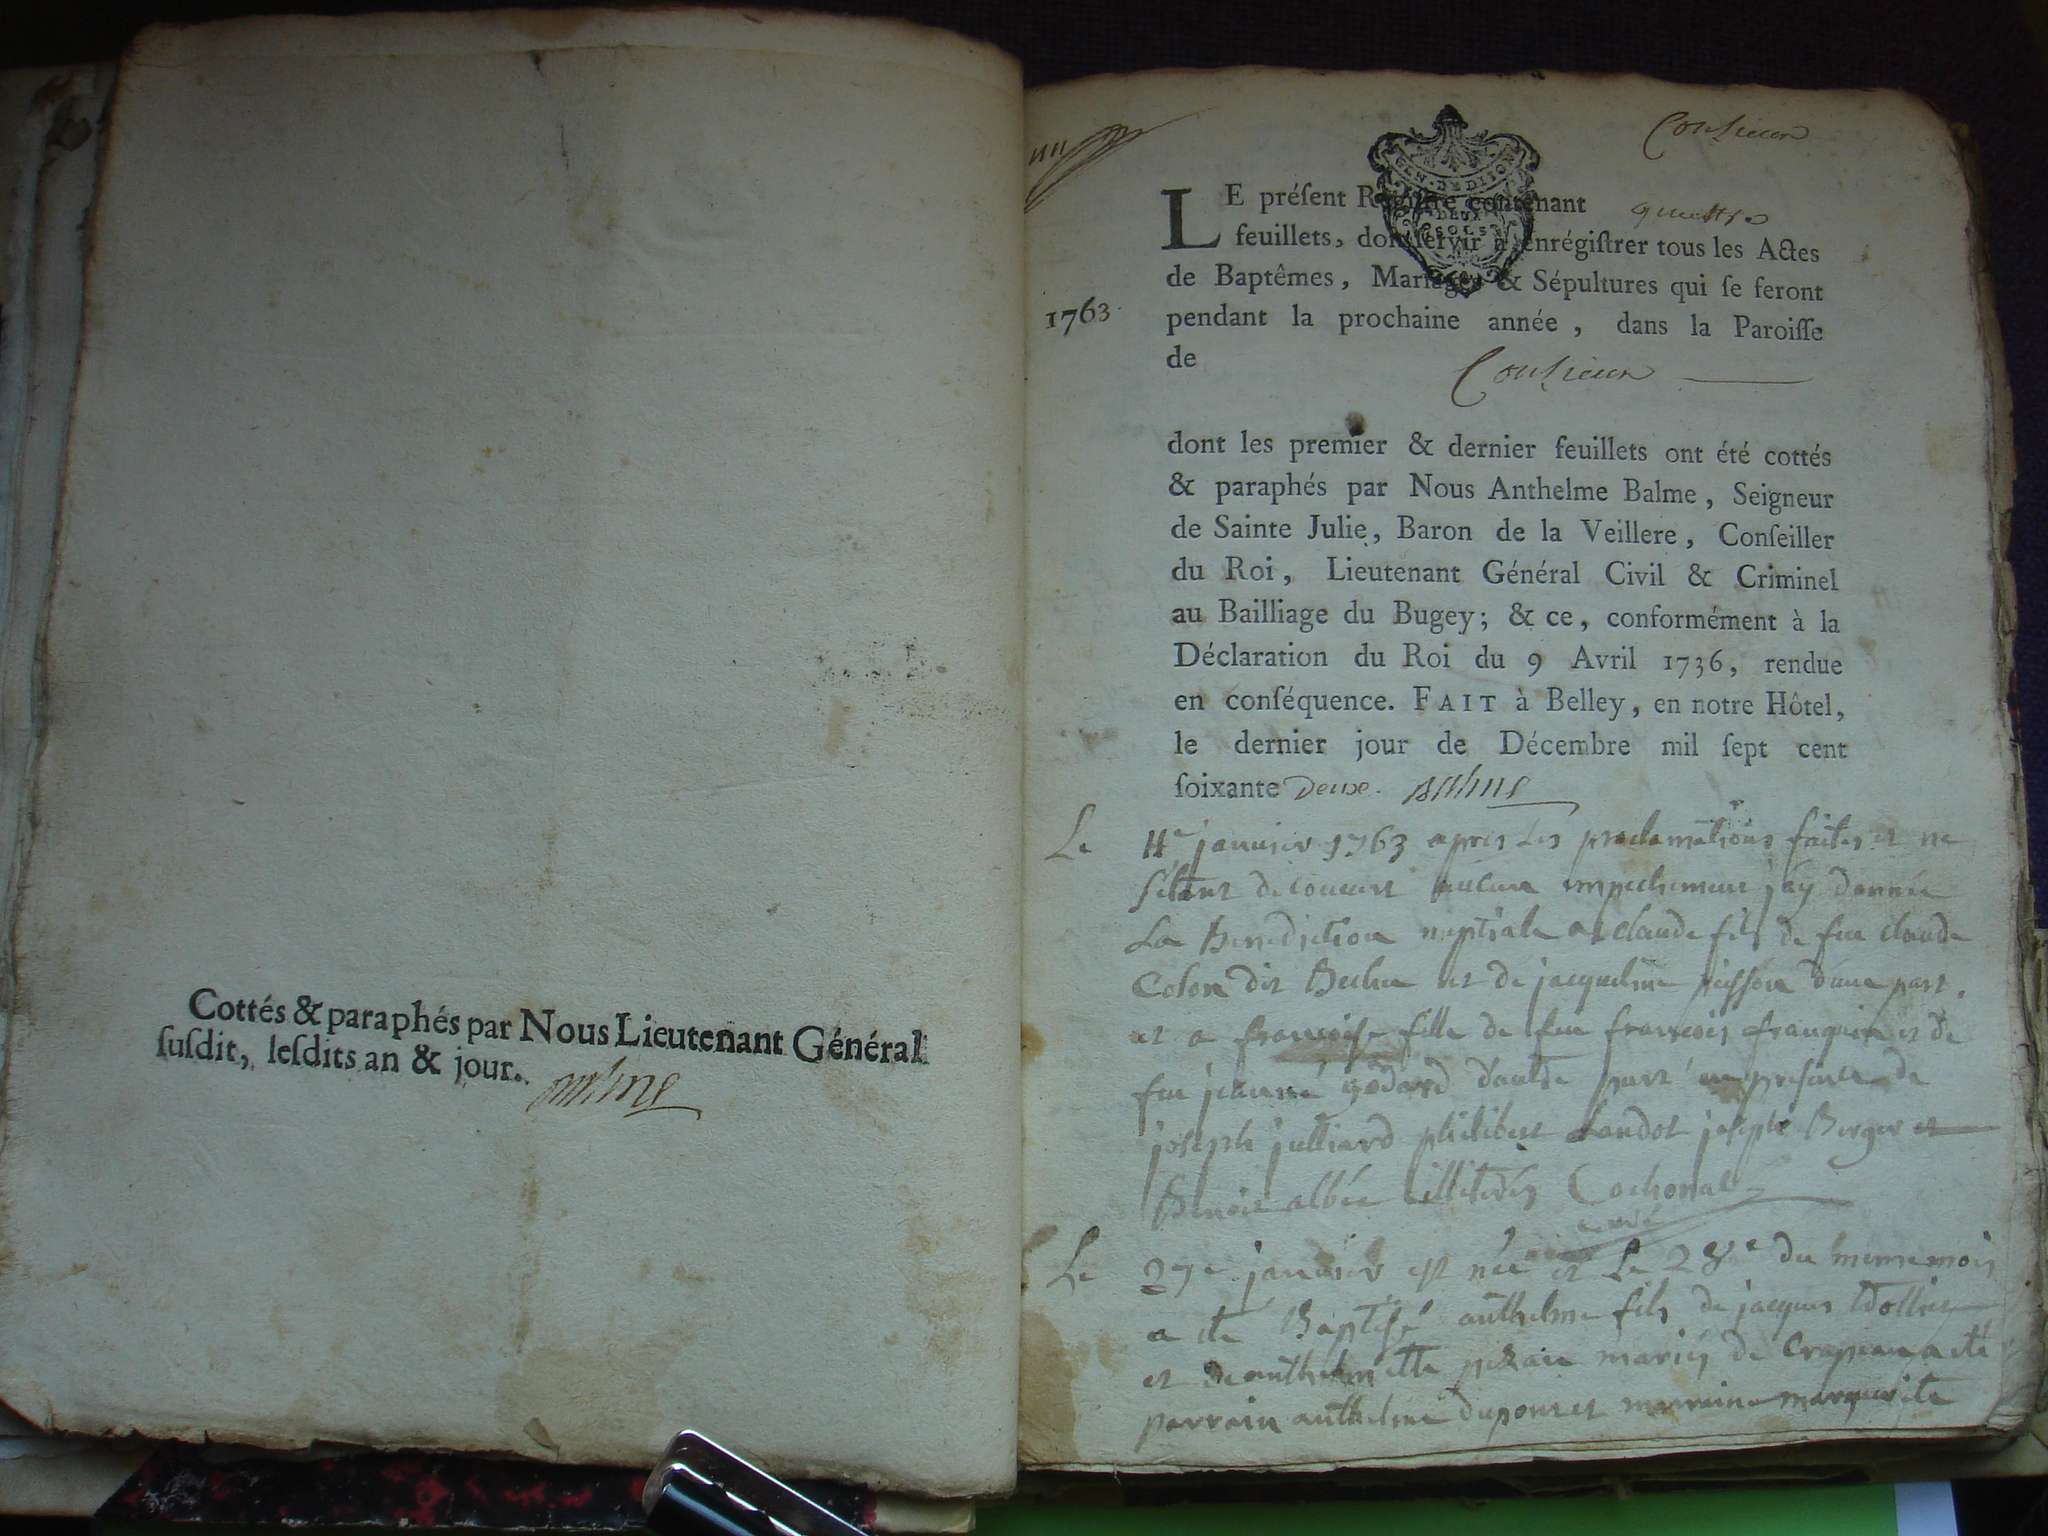 Cottés & paraphés par Nous Lieutenant Général
ſuſdit, leſdits an & jour.
Conzieu
GEN. DE DIJON
DEUX
SOLS
LE préſent Regiſtre contenant quattre
feuillets, doit ſervir à enrégiſtrer tous les Actes
de Baptêmes, Mariages & Sépultures qui ſe feront
1763.
pendant la prochaine année, dans la Paroiſſe
de Conzieu
dont les premier & dernier feuillets ont été cottés
& paraphés par Nous Anthelme Balme, Seigneur
de Sainte Julie, Baron de la Veillere, Conſeiller
du Roi, Lieutenant Général Civil & Criminel
au Bailliage du Bugey; & ce, conformément à la
Déclaration du Roi du 9 Avril 1736, rendue
en conſéquence. FAIT à Belley, en notre Hôtel,
le dernier jour de Décembre mil ſept cent
ſoixante deux. Balme
Le janvier 1763 apres les proclamations faites et ne
s'étant decouvert aucun empechement j'ay donnée
La Benediction nuptiale a claude fils de feu claude
Colon dit et de jacqueline d'une part.
et a françoise fille de feu francois franquin et de
feu jeanne godard d'aultre part en presence de
joseph julliard philibert joseph Berger et
Benoit albée illiterés Cochonat
curé
Le 27e janvier est née et Le 28e du meme mois
a ete Baptisé anthelme fils de jacques
et de anthelmette mariés de Crapeau a été
parrain anthelme dupont et marraine marguerite